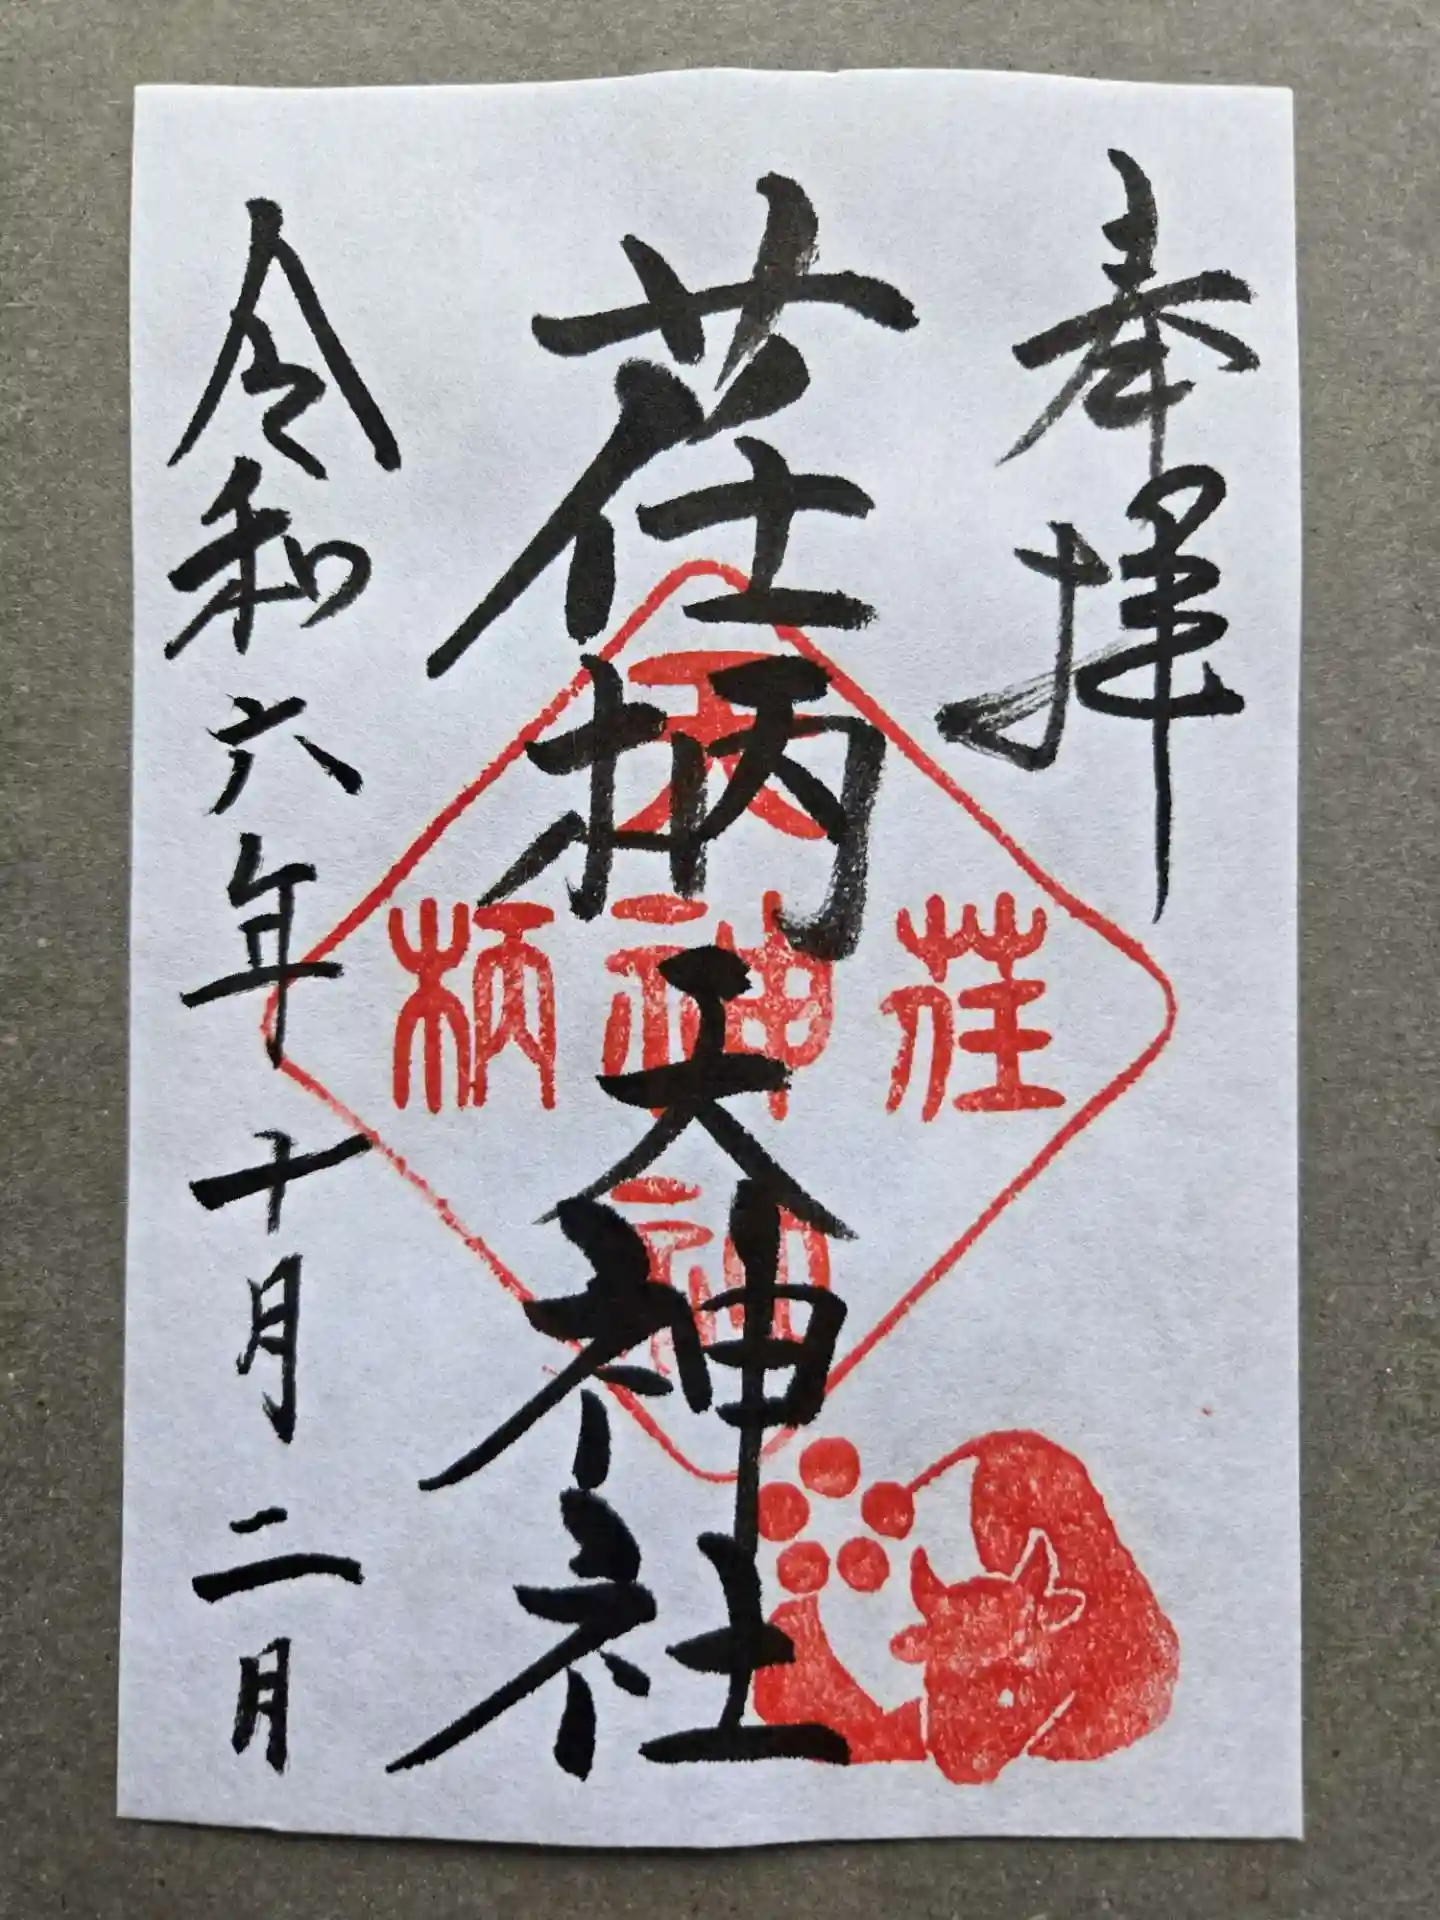 奉拝
荏柄天神社
荏
天神社
柄
令和六年十月二月